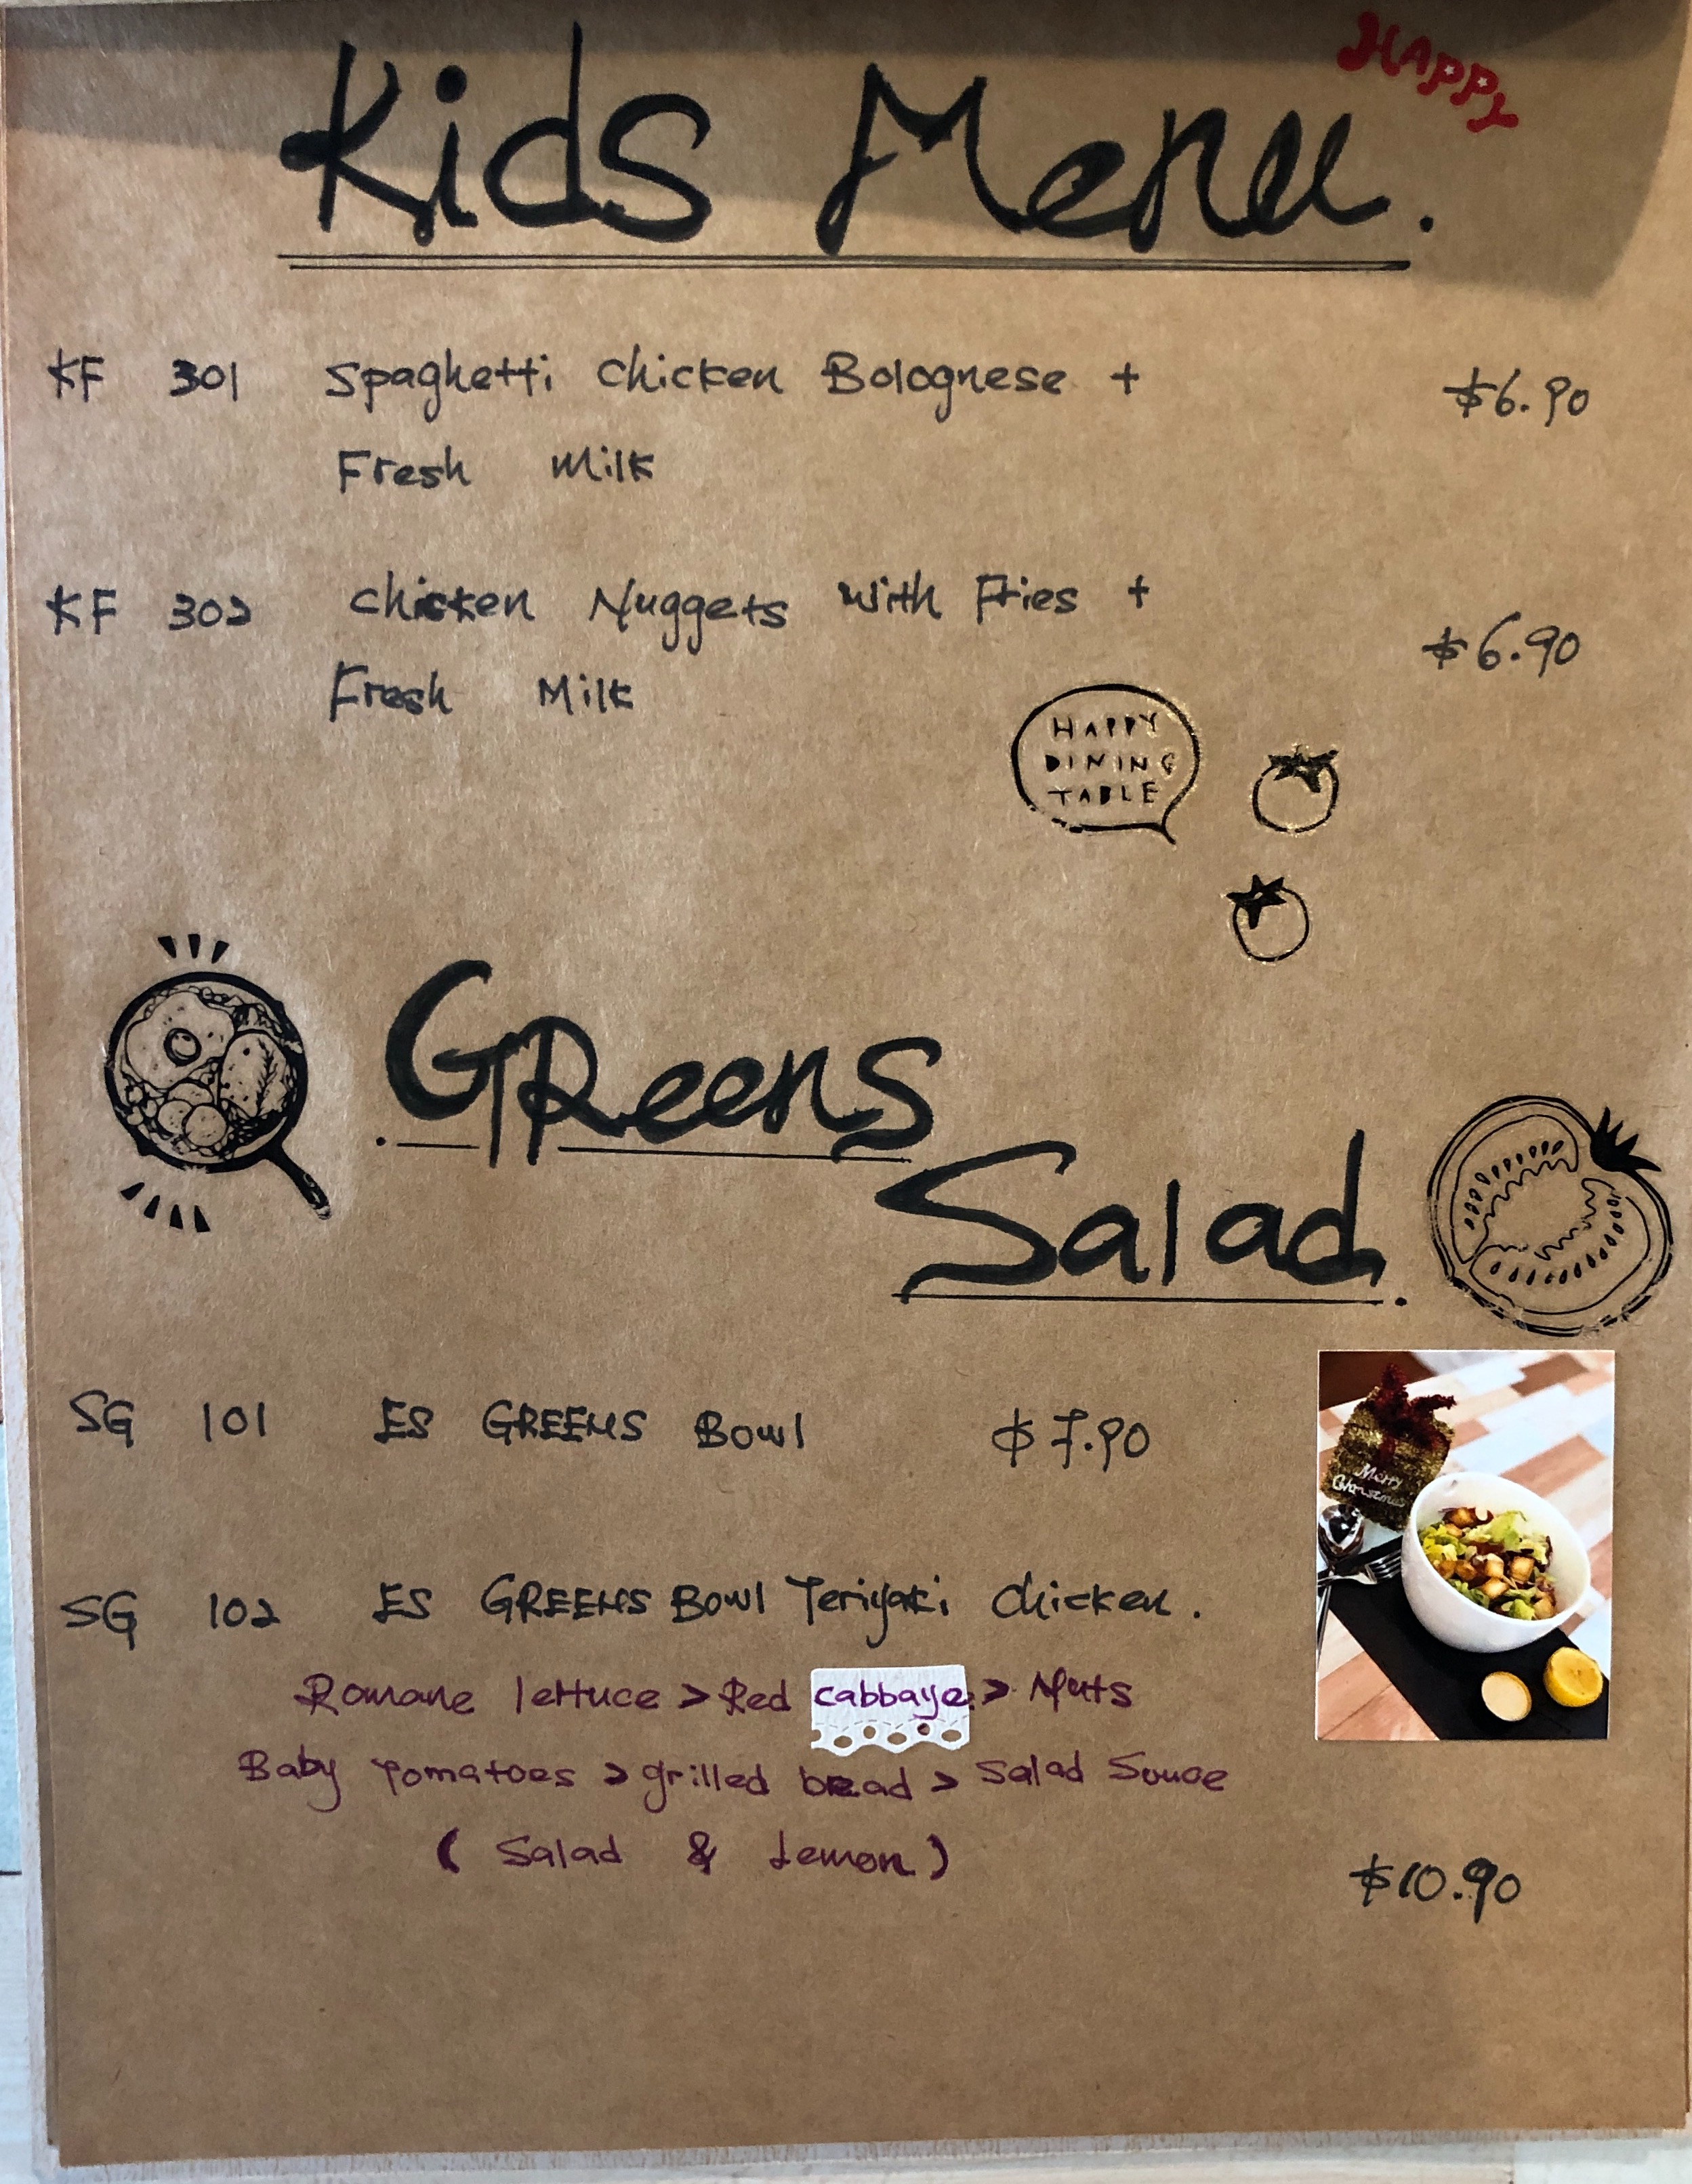 HAPPY
Kids Menu.
KF 301 Spaghetti Chicken Bolognese + $6.90
Fresh Milk
KF 302 Chicken Nuggets with Fries + $6.90
Fresh Milk
HAPPY
DINING
TABLE
GReens
Salad.
SG 101 ES GREENS Bowl $7.90
Merry
Christmas
SG 102 ES GREENS Bowl Teriyaki Chicken.
Romane lettuce > Red cabbage > Nuts
Baby Tomatoes > grilled bread > Salad Souce
( Salad & Lemon )
$10.90